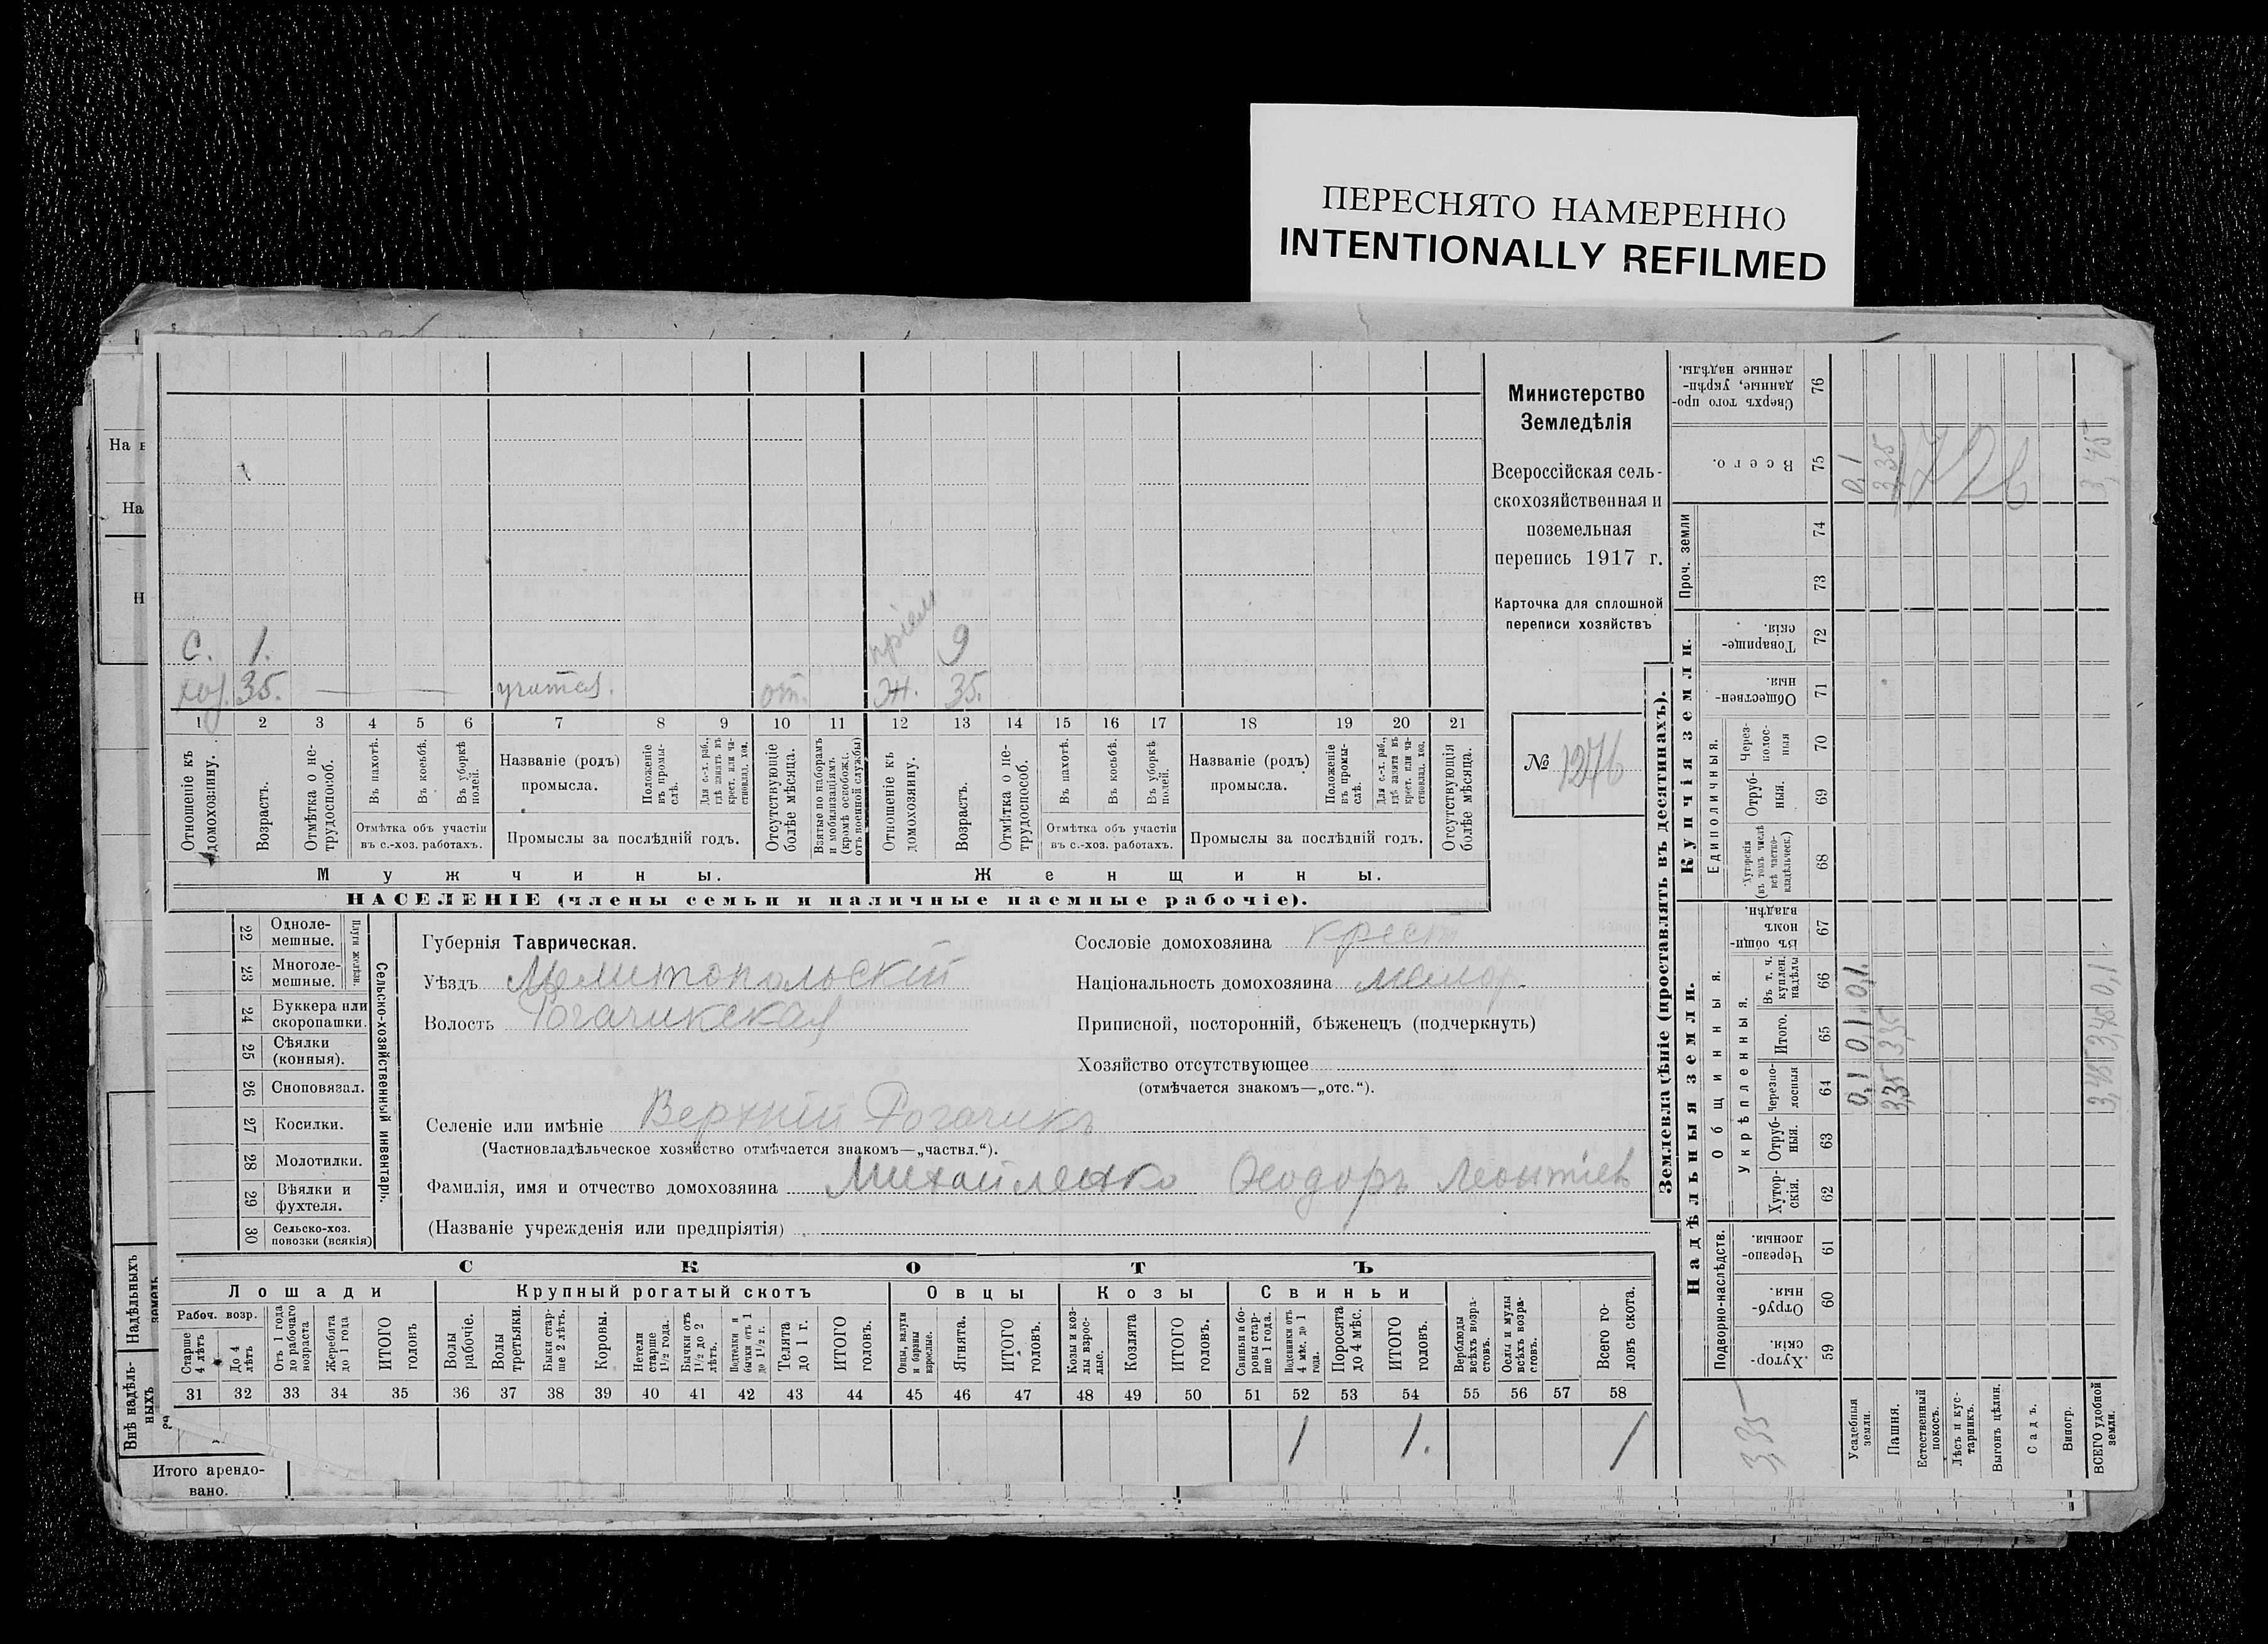 ПЕРЕСНЯТО НАМЕРЕННО
INTENTIONALLY REFILMED
Министерство
Земледѣлія
Всероссійская сель-
скохозяйственная и
поземельная
перепись 1917 г.
Карточка для сплошной
переписи хозяйствъ
№ 1276
С. 1. пріем 9
хоз. 35. учител. от. Ж. 35.
1 2 3 4 5 6 7 8 9 10 11 12 13 14 15 16 17 18 19 20 21
Отношеніе къ домохозяину.
Возрастъ.
Отмѣтка о не-трудоспособ.
Въ пахотѣ.
Въ косьбѣ.
Въ уборкѣ полей.
Отмѣтка объ участіи
въ с.-хоз. работахъ.
Названіе (родъ)
промысла.
Положеніе въ промы-слѣ.
Для с.-х. раб., гдѣ занятъ въ крест. или ча-стновлад. хоз.
Промыслы за послѣдній годъ.
Отсутствующіе болѣе мѣсяца.
Взятые по наборамъ и мобилизаціямъ (кромѣ освобожд. отъ военной службы)
Отношеніе къ домохозяину.
Возрастъ.
Отмѣтка о не-трудоспособ.
Въ пахотѣ.
Въ косьбѣ.
Въ уборкѣ полей.
Отмѣтка объ участіи
въ с.-хоз. работахъ.
Названіе (родъ)
промысла.
Положеніе въ промы-слѣ.
Для с.-х. раб., гдѣ занята въ крест. или ча-стновлад. хоз.
Промыслы за послѣдній годъ.
Отсутствующія болѣе мѣсяца.
Мужчины.
Женщины.
НАСЕЛЕНІЕ (члены семьи и наличные наемные рабочіе).
Сельско-хозяйственный инвентарь.
Плуги желѣзн.
22 Одноле-мешные.
23 Многоле-мешные.
24 Буккера или скоропашки.
25 Сѣялки (конныя).
26 Сноповязал.
27 Косилки.
28 Молотилки.
29 Вѣялки и фухтеля.
30 Сельско-хоз. повозки (всякія)
Губернія Таврическая.
Уѣздъ Мелитопольскій
Волость Рогачикская
Сословіе домохозяина крест
Національность домохозяина малор.
Приписной, посторонній, бѣженецъ (подчеркнуть)
Хозяйство отсутствующее
(отмѣчается знакомъ—„отс.“).
Селеніе или имѣніе Верхній Рогачикъ
(Частновладѣльческое хозяйство отмѣчается знакомъ—„частвл.“).
Фамилія, имя и отчество домохозяина Михайленко Ѳеодоръ Леонтіев
(Названіе учрежденія или предпріятія)
СКОТЪ
Лошади
Крупный рогатый скотъ
Овцы
Козы
Свиньи
Рабоч. возр.
Старше 4 лѣтъ
До 4 лѣтъ
Отъ 1 года до рабочаго возраста
Жеребята до 1 года
ИТОГО головъ
Волы рабочіе.
Волы третьяки.
Быки стар-ше 2 лѣтъ.
Коровы.
Нетели старше 1½ года.
Бычки отъ 1½ до 2 лѣтъ.
Подтелки и бычки отъ 1 до 1½ г.
Телята до 1 г.
ИТОГО головъ.
Овцы, валухи и бараны взрослые.
Ягнята.
ИТОГО головъ.
Козы и коз-лы взрос-лые.
Козлята
ИТОГО головъ.
Свиньи и бо-ровы стар-ше 1 года.
Подсвинки отъ 4 мѣс. до 1 года.
Поросята до 4 мѣс.
ИТОГО головъ.
Верблюды всѣхъ возра-стовъ.
Ослы и мулы всѣхъ возра-стовъ.
Всего го-ловъ скота.
31 32 33 34 35 36 37 38 39 40 41 42 43 44 45 46 47 48 49 50 51 52 53 54 55 56 57 58
1 1. 1
Землевладѣніе (проставлять въ десятинахъ).
Сверхъ того про-данные, укрѣп-ленные надѣлы. 76
Всего. 75
0,1
3,35
726
3,45
Проч. земли
74
73
Купчія земли.
Товарище-скія. 72
Обществен-ныя. 71
Единоличныя.
Через-полос-ныя 70
Отруб-ныя. 69
Хуторскія (въ томъ числѣ всѣ частно-владѣльческ.) 68
Надѣльныя земли.
Общинныя.
Въ общи-номъ владѣн. 67
Укрѣпленныя.
Въ т. ч. куплен. надѣлы 66 0,1. 0,1
Итого. 65 0,1 3,35 3,45
Черезпо-лосныя 64 0,1 3,35 3,45
Отруб-ныя. 63
Хутор-скія. 62
Подворно-наслѣдств.
Черезпо-лосныя. 61
Отруб-ныя. 60
Хутор-скія. 59
3,35
Усадебныя земли.
Пашня.
Естественный покосъ.
Лѣсъ и кус-тарникъ.
Выгонъ цѣлин.
Садъ.
Виногр.
ВСЕГО удобной земли.
На
Надѣльныхъ
Внѣ надѣль-ныхъ
Итого арендо-
вано.